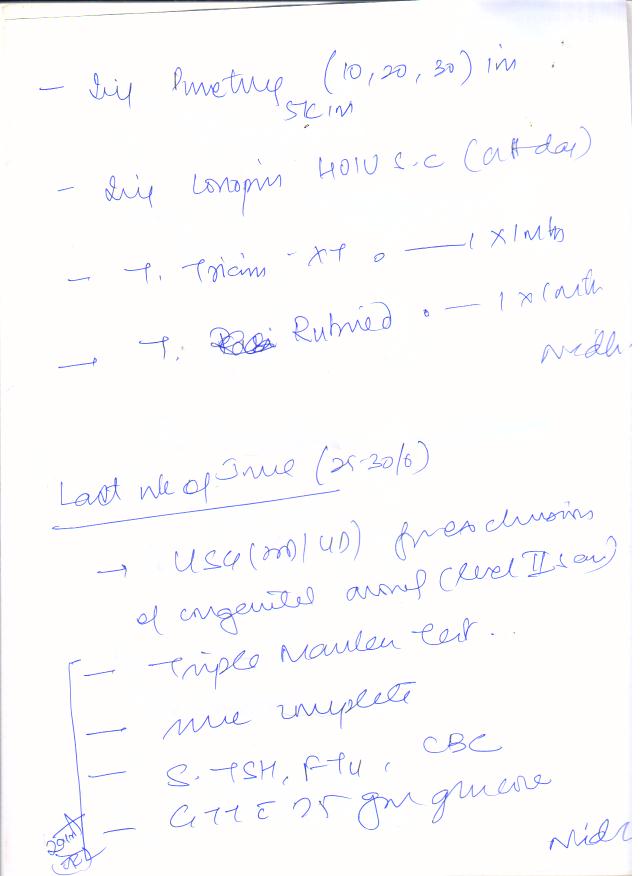 - Inj (10, 20, 30) im
SKIN
- Inj Lonopin 40IU S.C (alt day)
- T. Tricium - XT 0 — 1 x 1 mth
→ T. Rubried . — 1 x 1 mth
Nidhi
Last wk of June (25-30/6)
→ USG (3D/4D) for exclusion
of congenital anomal (level II scan)
— Triple Marker test ..
— urine complete
— S. TSH, FT4, CBC
— GTT c 75 gm glucose
Nidhi